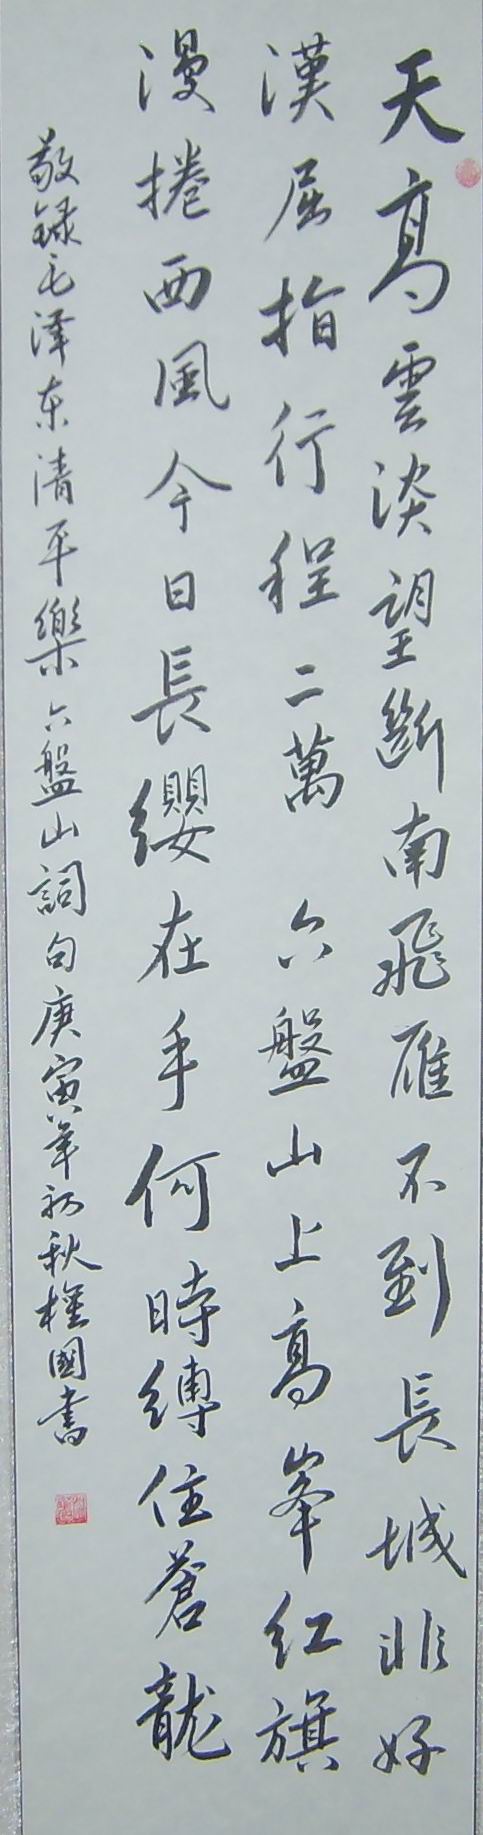 天高雲淡望斷南飛雁不到長城非好
漢屈指行程二萬 六盤山上高峯红旗
漫捲西風今日長纓在手何時縛住蒼龍
敬録毛泽东清平樂六盤山詞句庚寅年初秋權國書